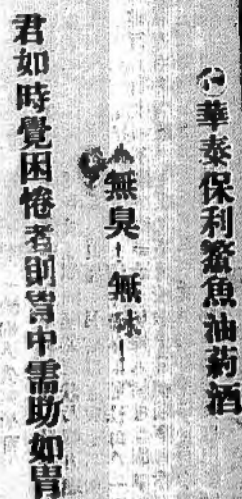 華泰保利鰵魚油葯酒
無臭!無味!
君如時覺困倦者則胃中需助如胃